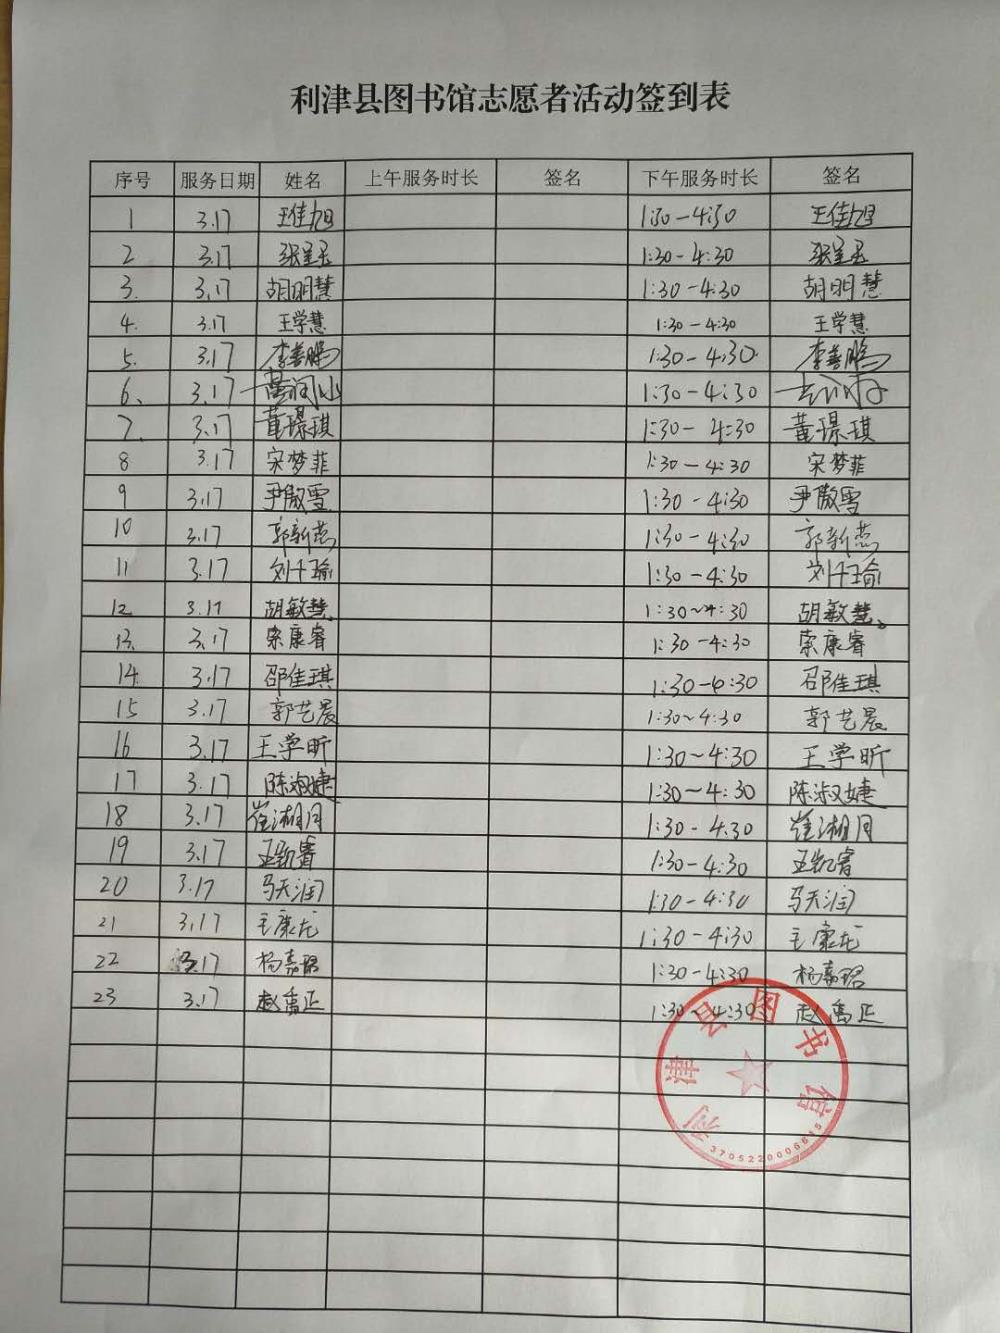 利津县图书馆志愿者活动签到表
序号 服务日期 姓名 上午服务时长 签名 下午服务时长 签名
1 3.17 王佳旭 1:30-4:30 王佳旭
2 3.17 1:30-4:30
3. 3.17 胡明慧 1:30-4:30 胡明慧
4. 3.17 王学慧 1:30-4:30 王学慧
5. 3.17 李善鹏 1:30-4:30. 李善鹏
6、 3.17 1:30-4:30
7. 3.17 董璟琪 1:30-4:30 董璟琪
8 3.17 宋梦菲 1:30-4:30 宋梦菲
9 3.17 尹傲雪 1:30-4:30 尹傲雪
10 3.17 郭新蕊 1:30-4:30 郭新蕊
11 3.17 刘千瑜 1:30-4:30 刘千瑜
12 3.17 胡敏慧. 1:30~4:30 胡敏慧。
13. 3.17 索康睿 1:30-4:30 索康睿
14. 3.17 邵佳琪 1:30-4:30 邵佳琪
15 3.17 郭艺晨 1:30~4:30 郭艺晨
16 3.17 王学昕 1:30~4:30 王学昕
17 3.17 陈淑婕 1:30~4:30 陈淑婕
18 3.17 崔湘月 1:30-4.30 崔湘月
19 3.17 王凯睿 1:30-4:30 王凯睿
20 3.17 马天润 1:30-4:30 马天润
21 3.17 王康龙 1:30-4:30 王康龙
22 3.17 杨嘉珺 1:30-4:30 杨嘉珺
23 3.17 赵禹正 1:30-4:30 赵禹正
利津县图书馆
3705220006615